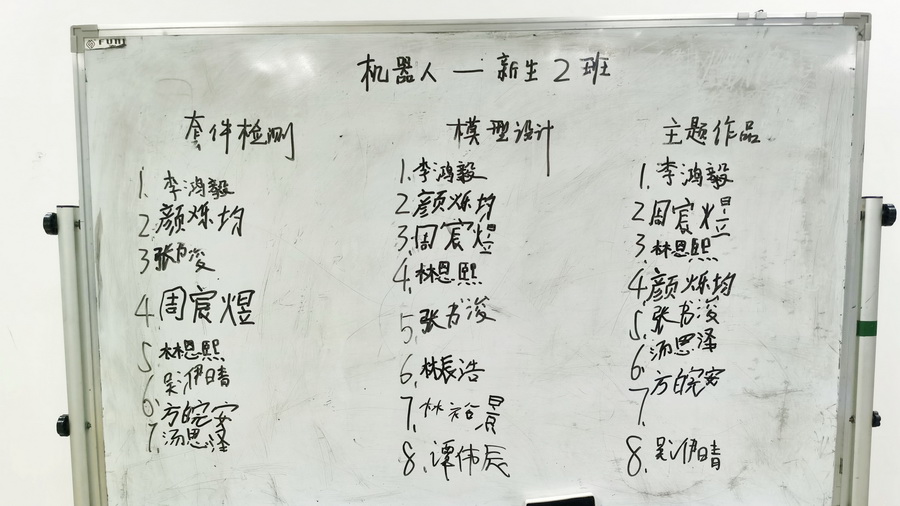 机器人 — 新生2班
套件检测
1. 李鸿毅
2 颜烁均
3 张书浚
4. 周宸煜
5 林恩熙
吴伊晴
6. 方皖安
7. 汤思泽
模型设计
1. 李鸿毅
2 颜烁均
3. 周宸煜
4. 林恩熙
5. 张书浚
6. 林辰浩
7. 林裕晨
8. 谭伟辰
主题作品
1. 李鸿毅
2 周宸煜
3. 林恩熙
4. 颜烁均
5. 张书浚
6. 汤思泽
7. 方皖安
8. 吴伊晴